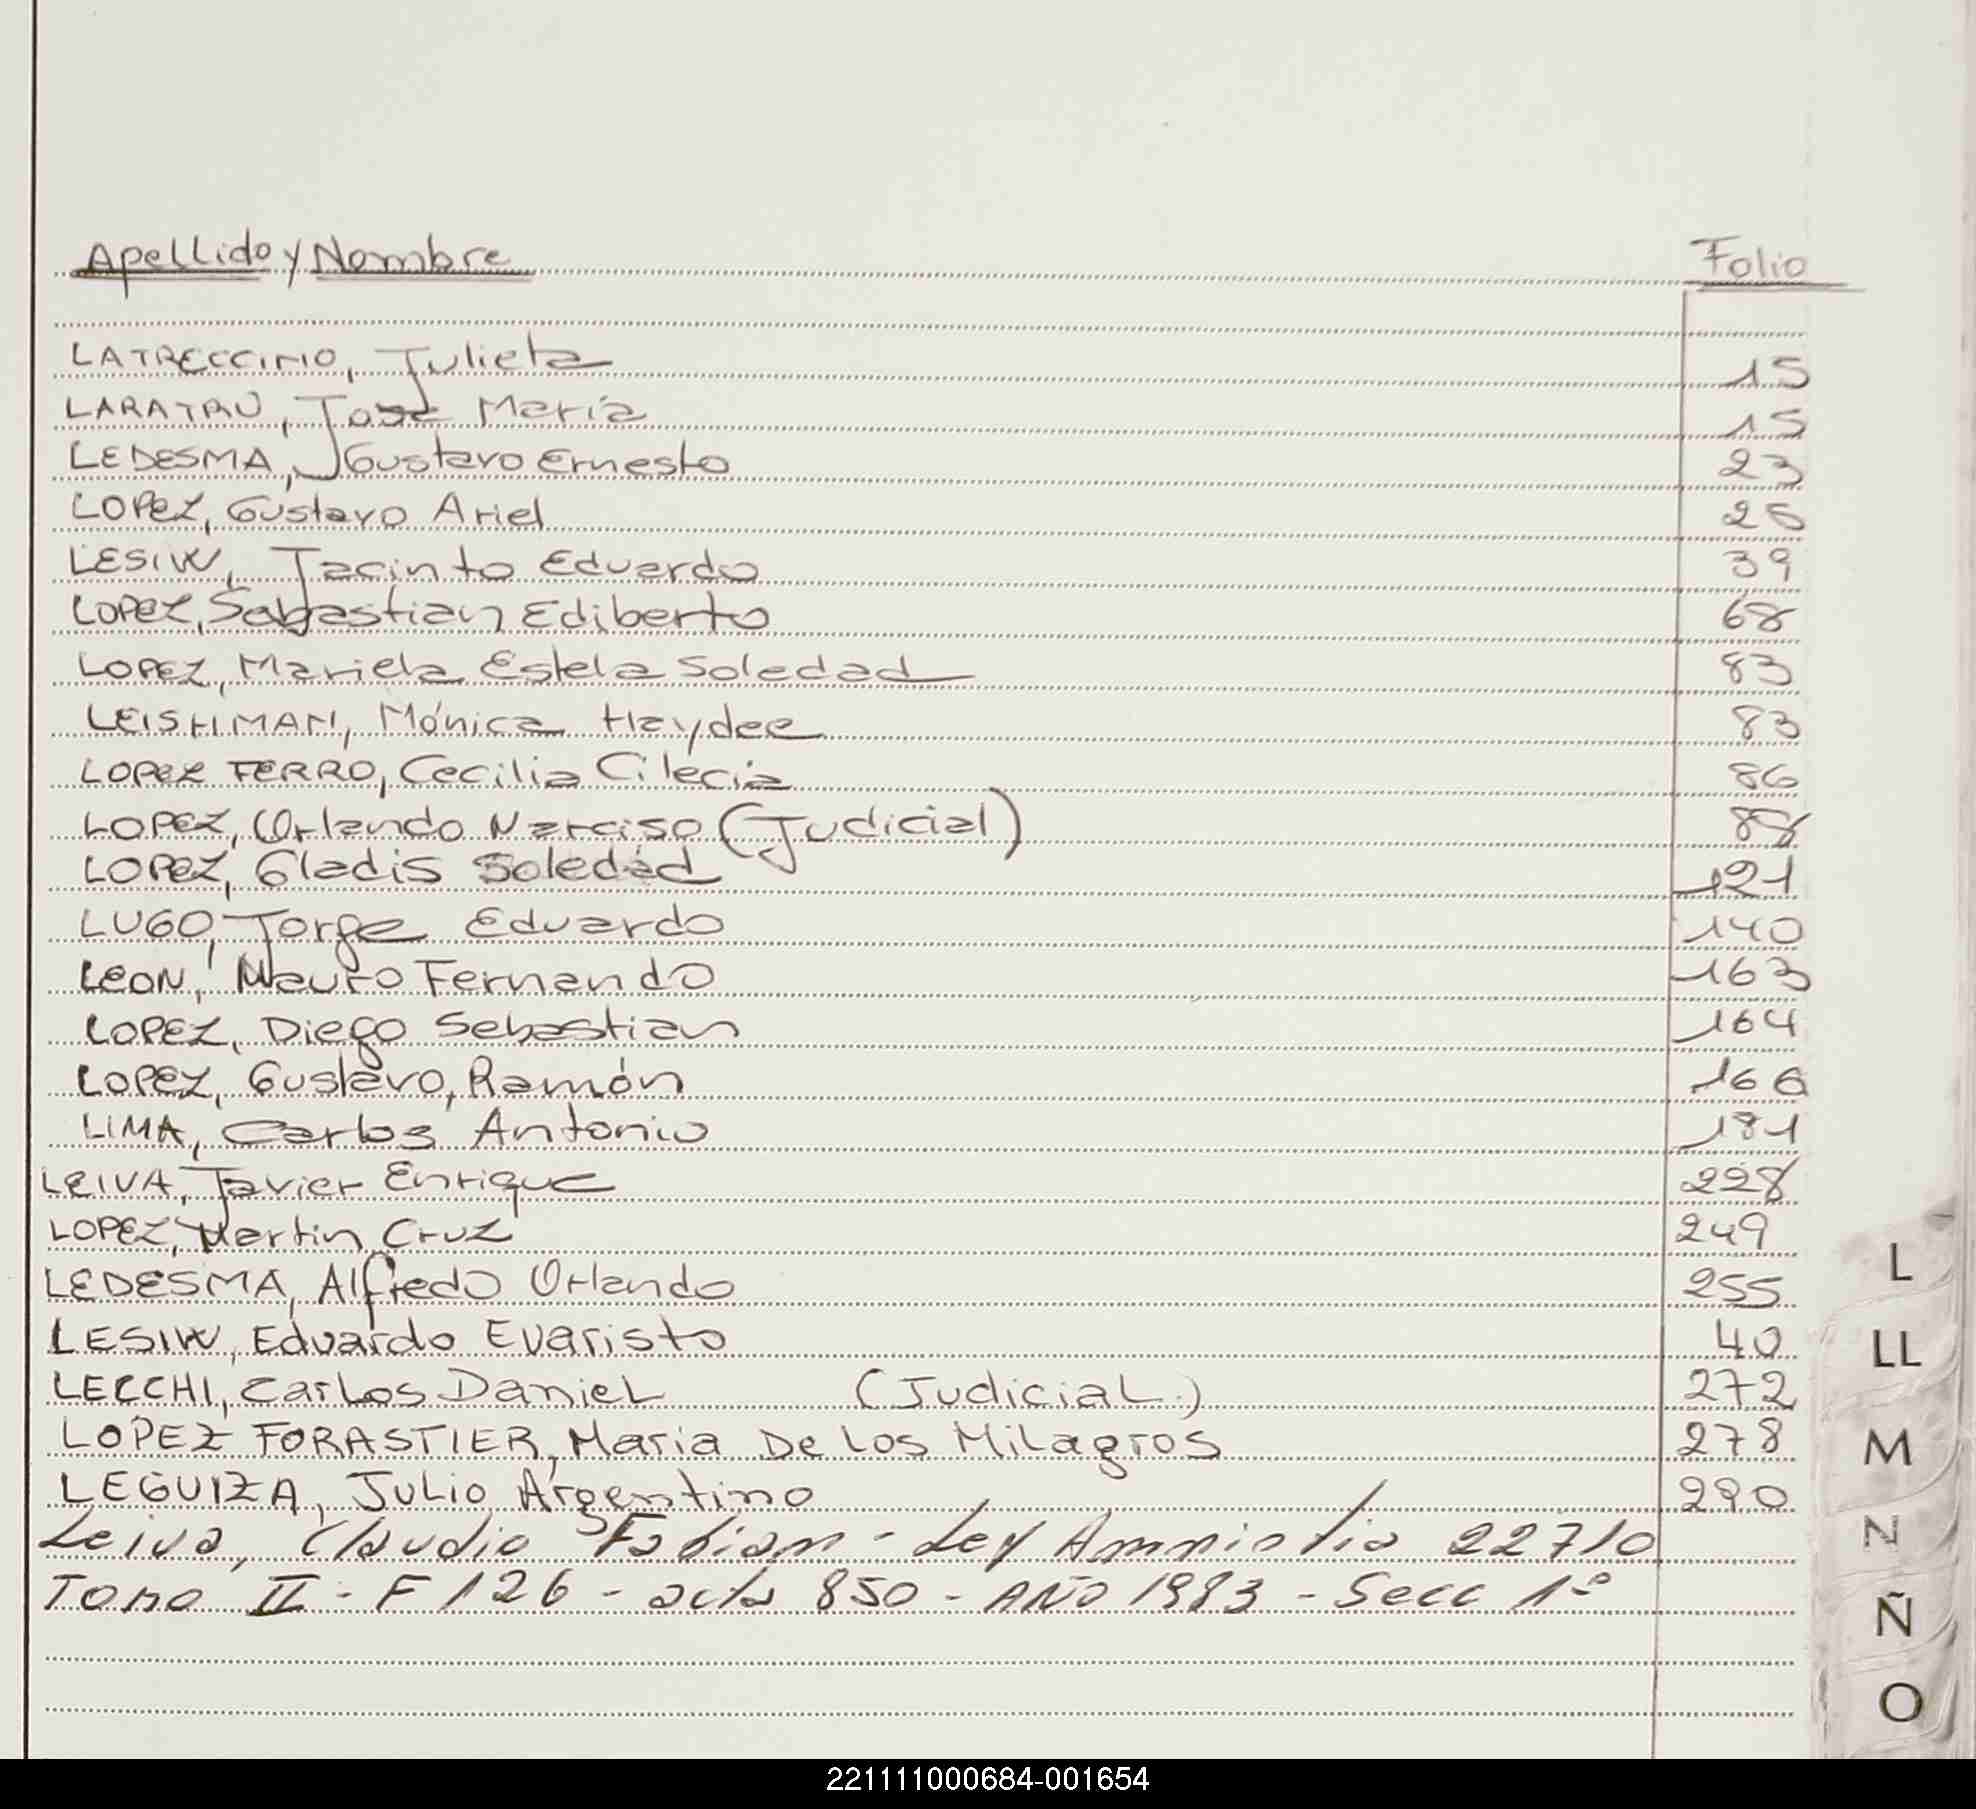 Apellido y Nombre Folio
LATRECCINO, Julieta 15
LARATRO, José María 15
LEDESMA, Gustavo Ernesto 23
LOPEZ, Gustavo Ariel 25
LESIW, Jacinto Eduardo 39
LOPEZ, Sebastian Ediberto 68
LOPEZ, Mariela Estela Soledad 83
LEISHMAN, Mónica Haydee 83
LOPEZ FERRO, Cecilia Cilecia 86
LOPEZ, Orlando Narciso (Judicial) 88
LOPEZ, Gladis Soledad 121
LUGO, Jorge Eduardo 140
LEON, Mauro Fernando 163
LOPEZ, Diego Sebastian 164
LOPEZ, Gustavo, Ramón 166
LIMA, Carlos Antonio 181
LEIVA, Javier Enrique 228
LOPEZ, Martin Cruz 249
LEDESMA, Alfredo Orlando 255
LESIW, Eduardo Evaristo 40
LECCHI, Carlos Daniel (Judicial) 272
LOPEZ FORASTIER, Maria De Los Milagros 278
LEGUIZA, Julio Argentino 290
Leiva, Claudio Fabian - Ley Amnistia 22710
Tomo II - F 126 - acta 850 - AÑO 1983 - Secc 1º
L
LL
M
N
Ñ
O
221111000684-001654